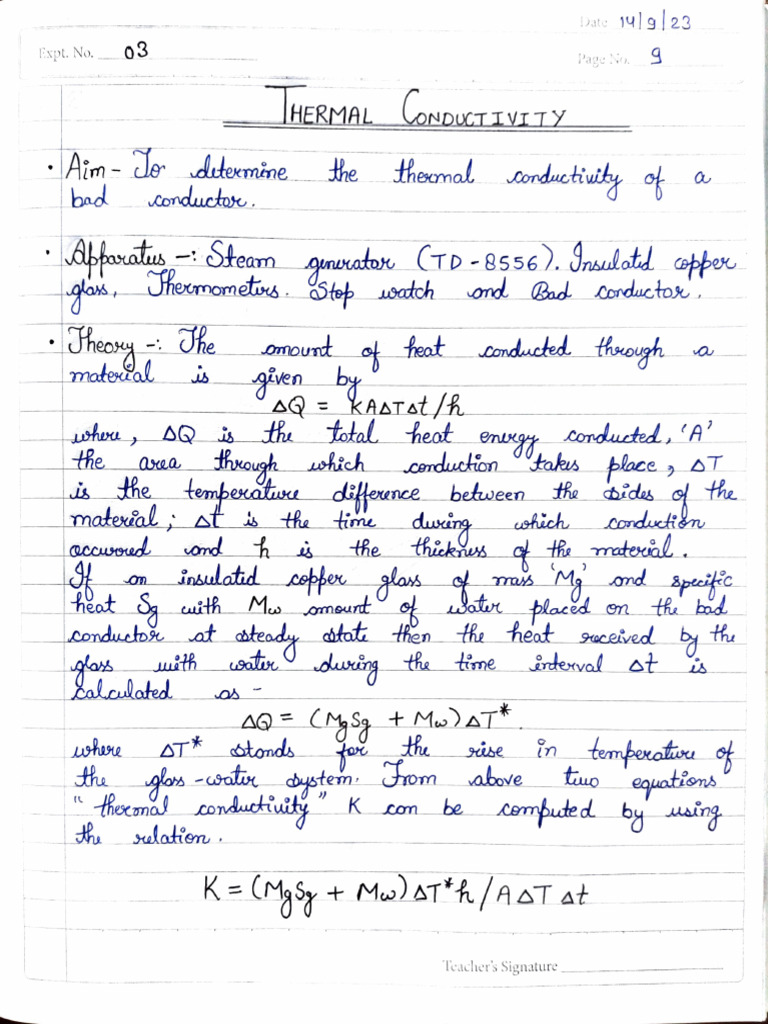 Date 14/9/23
Expt. No. 03
Page No. 9
THERMAL CONDUCTIVITY
• Aim - To determine the thermal conductivity of a
bad conductor.
• Apparatus -: Steam generator (TD-8556). Insulated copper
glass, Thermometers. Stop watch and Bad conductor.
• Theory -: The amount of heat conducted through a
material is given by
ΔQ = KAΔTΔt/h
where, ΔQ is the total heat energy conducted, 'A'
the area through which conduction takes place, ΔT
is the temperature difference between the sides of the
material; Δt is the time during which conduction
occurred and h is the thickness of the material.
If an insulated copper glass of mass 'Mg' and specific
heat Sg with Mw amount of water placed on the bad
conductor at steady state then the heat received by the
glass with water during the time interval Δt is
calculated as -
ΔQ = (MgSg + Mw)ΔT*.
where ΔT* stands for the rise in temperature of
the glass-water system. From above two equations
"thermal conductivity" K can be computed by using
the relation.
K = (MgSg + Mw)ΔT*h/AΔTΔt
Teacher's Signature